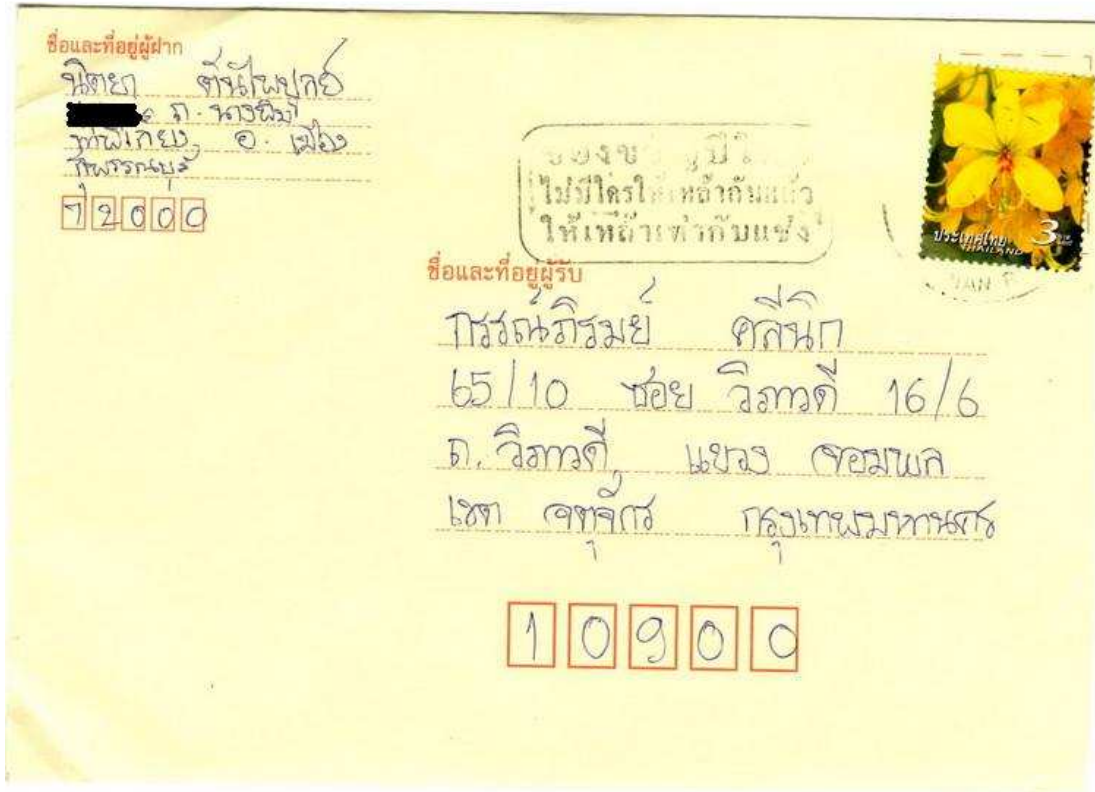 ชื่อและที่อยู่ผู้ฝาก
นิตยา ตันไพบูลย์
ถ. นางพิม
ท่าพี่เลี้ยง, อ. เมือง
สุพรรณบุรี
72000
ไม่มีใครให้เหล้ากันแล้ว
ให้เหล้าเท่ากับแช่ง
ประเทศไทย 3
THAILAND
ชื่อและที่อยู่ผู้รับ
กรรณ์ภิรมย์ คลีนิก
65/10 ซอย วิภาวดี 16/6
ถ. วิภาวดี, แขวง จอมพล
เขต จตุจักร กรุงเทพมหานคร
10900